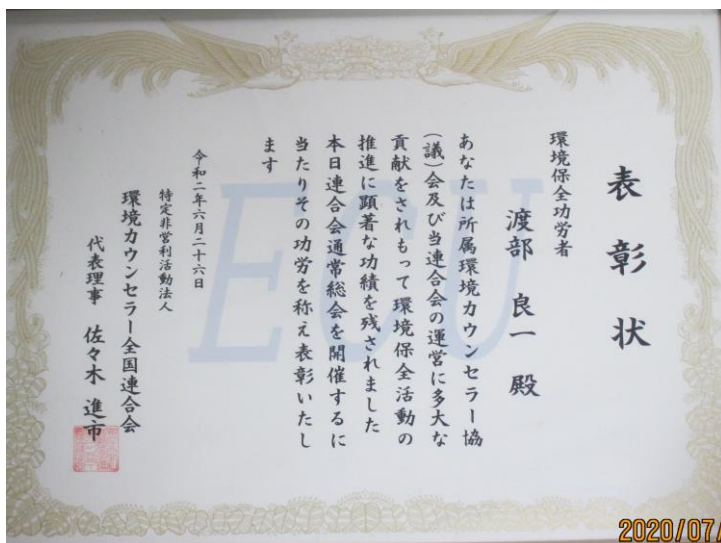 表彰状
環境保全功労者
渡部 良一 殿
あなたは所属環境カウンセラー協
(議)会及び当連合会の運営に多大な
貢献をされもって環境保全活動の
推進に顕著な功績を残されました
本日連合会通常総会を開催するに
当たりその功労を称え表彰いたし
ます
令和二年六月二十六日
特定非営利活動法人
環境カウンセラー全国連合会
代表理事 佐々木 進市
ECU
2020/07/